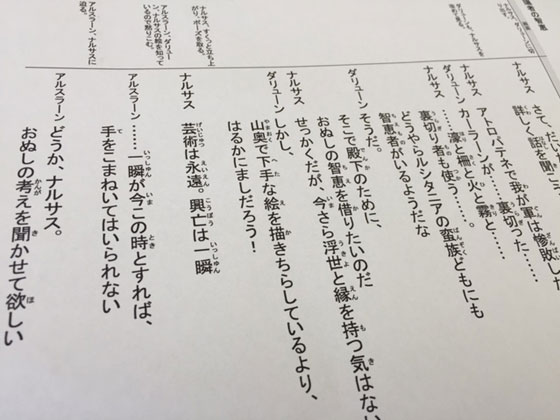 ナルサス、すくっと立ち上
がり、ポーズを取る。
アルスラーン、ダリュー
ン、ナルサスの絵を知って
いるので黙りこむ。
アルスラーン、ナルサスに
迫る。
ナルサス
詳しく話を聞こ
アトロパテネで我が軍は惨敗した
ダリューン カーラーンが……裏切った……
ナルサス ……濠と柵と火と霧と……
裏切り者も使う……。
どうやらルシタニアの蛮族どもにも
智恵者がいるようだな
ダリューン そうだ。
そこで殿下のために、
おぬしの智恵を借りたいのだ
ナルサス せっかくだが、今さら浮世と縁を持つ気はない
ダリューン しかし、
山奥で下手な絵を描きちらしているより、
はるかにましだろう！
ナルサス 芸術は永遠。興亡は一瞬
アルスラーン ……一瞬が今この時とすれば、
手をこまねいてはいられない
アルスラーン どうか、ナルサス。
おぬしの考えを聞かせて欲しい